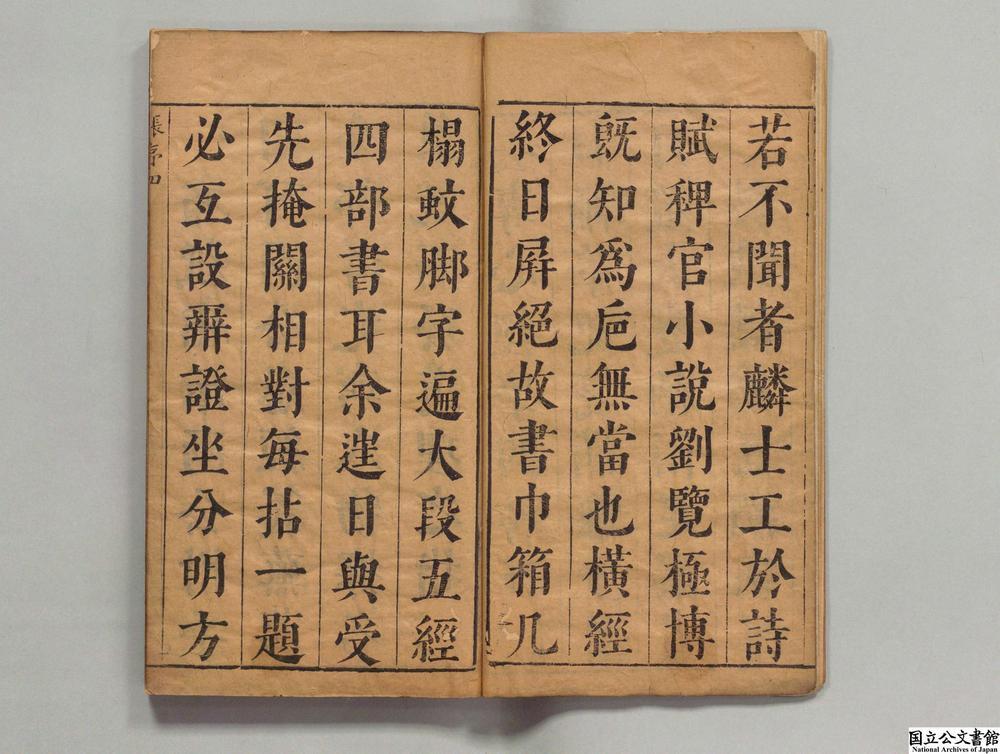 若不聞者麟士工於詩
賦稗官小說劉覽極博
旣知爲巵無當也橫經
終日屏絕故書巾箱几
榻蚊脚字遍大段五經
四部書耳余逬日與受
先掩關相對每拈一題
必互設辨證坐分明方
張序四
国立公文書館
National Archives of Japan